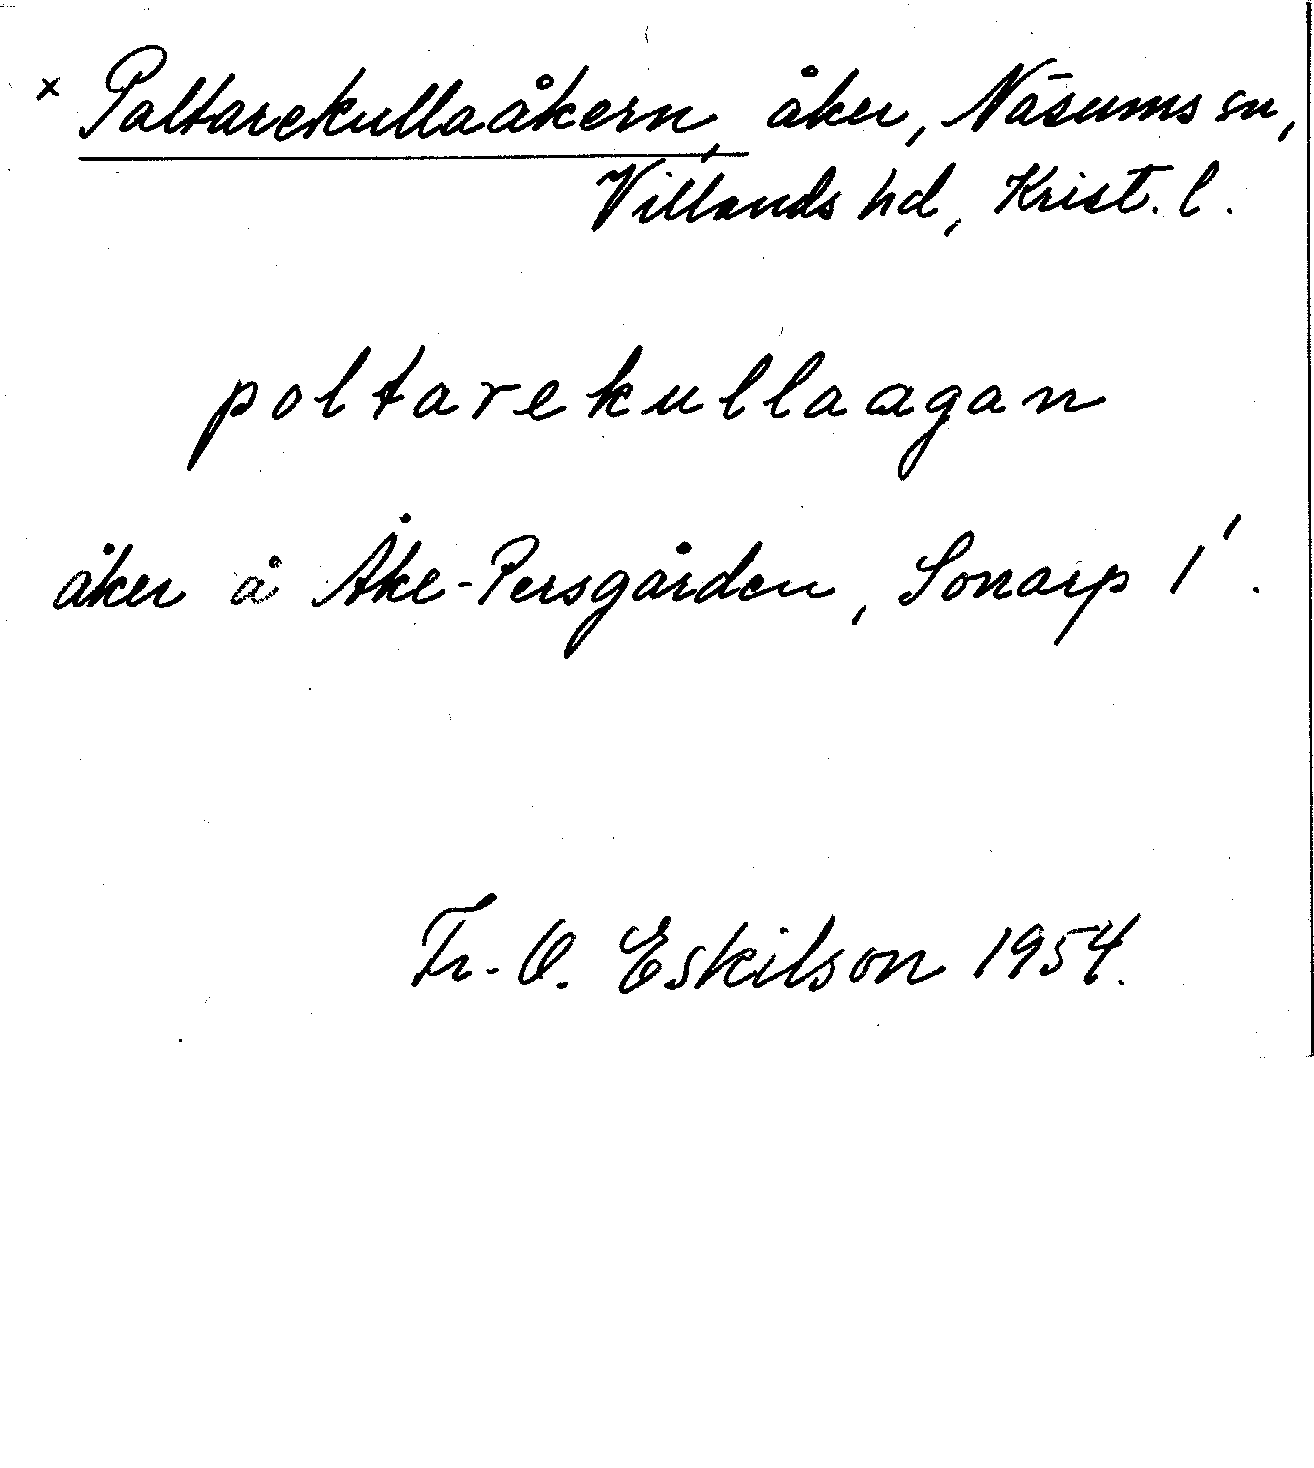 x Paltarekullaåkern, åker, Näsums sn,
Villands hd, Krist. l.
poltarekullaagan
åker å Åke-Persgården, Sonarp 1'.
Fr. O. Eskilson 1954.